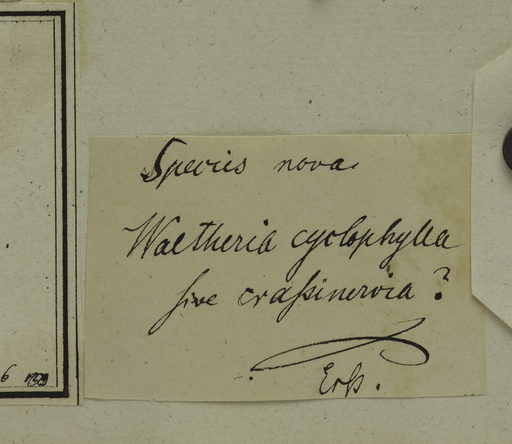 Species nova.
Waltheria cyclophylla
sive crassinervia?